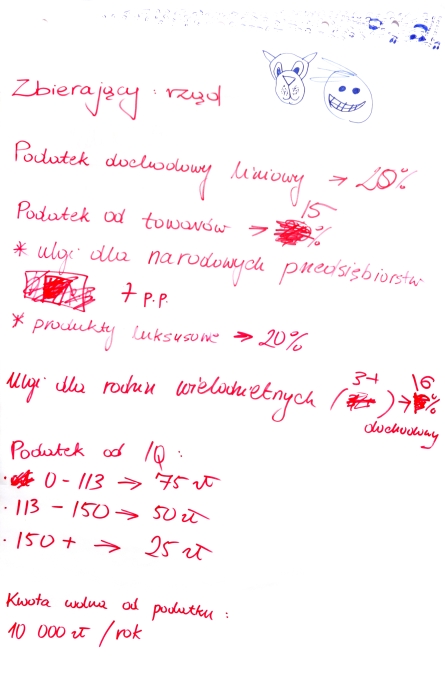 Zbierający : rząd
Podatek dochodowy liniowy → 20%
Podatek od towarów → 15%
* ulgi dla narodowych przedsiębiorstw
7 p.p.
* produkty luksusowe → 20%
Ulgi dla rodzin wielodzietnych (3+) → 16%
dochodowy
Podatek od IQ :
· 0 - 113 → 75 zł
· 113 - 150 → 50 zł
· 150 + → 25 zł
Kwota wolna od podatku :
10 000 zł / rok